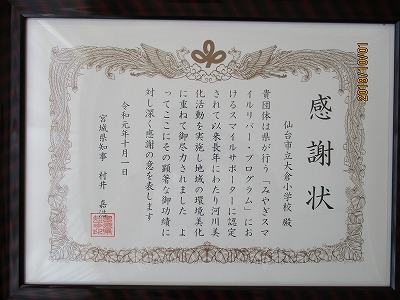 感謝状
仙台市立大倉小学校 殿
貴団体は県が行う「みやぎスマ
イルリバー・プログラム」にお
けるスマイルサポーターに認定
されて以来長年にわたり河川美
化活動を実施し地域の環境美化
に重ねて御尽力されました よ
ってここにその顕著な御功績に
対し深く感謝の意を表します
令和元年十月一日
宮城県知事 村井 嘉浩
2019/10/01